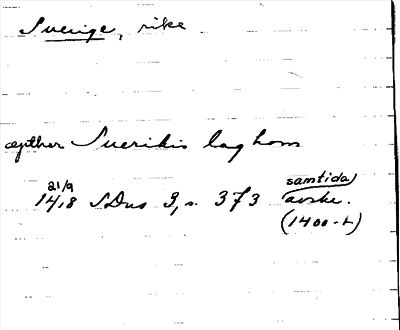 Sverige, rike
æpther Suerikis laghom
21/9 samtida
1418 SDns 3, s. 373 avskr.
(1400-t)